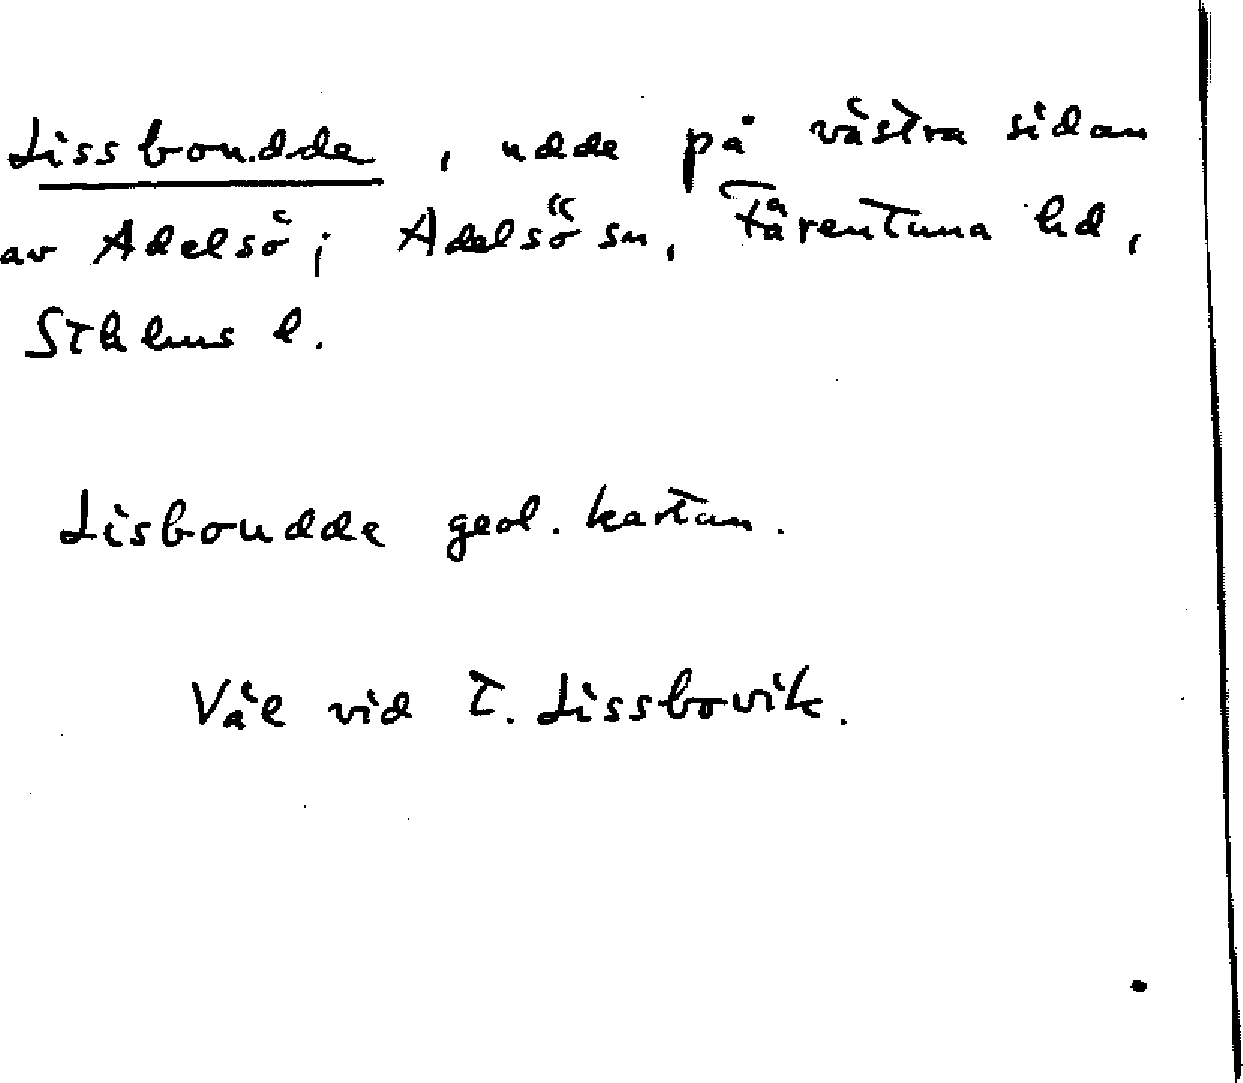 Lissboudde, udde på västra sidan
av Adelsö; Adelsö sn, Färentuna hd,
Sthlms l.
Lisboudde geol. kartan.
Väl vid t. Lissbovik.